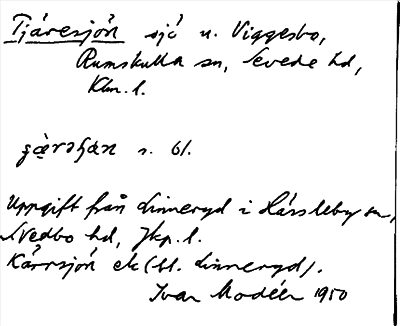 Tjäresjön sjö n. Viggesbo,
Rumskulla sn, Sevede hd,
Klm. l.
s. 61.
Uppgift från Linneryd i Hässleby sn,
Svedbo hd, Jkp. l.
Kärrsjön ek (bl. Linneryd).
Ivar Modéer 1950